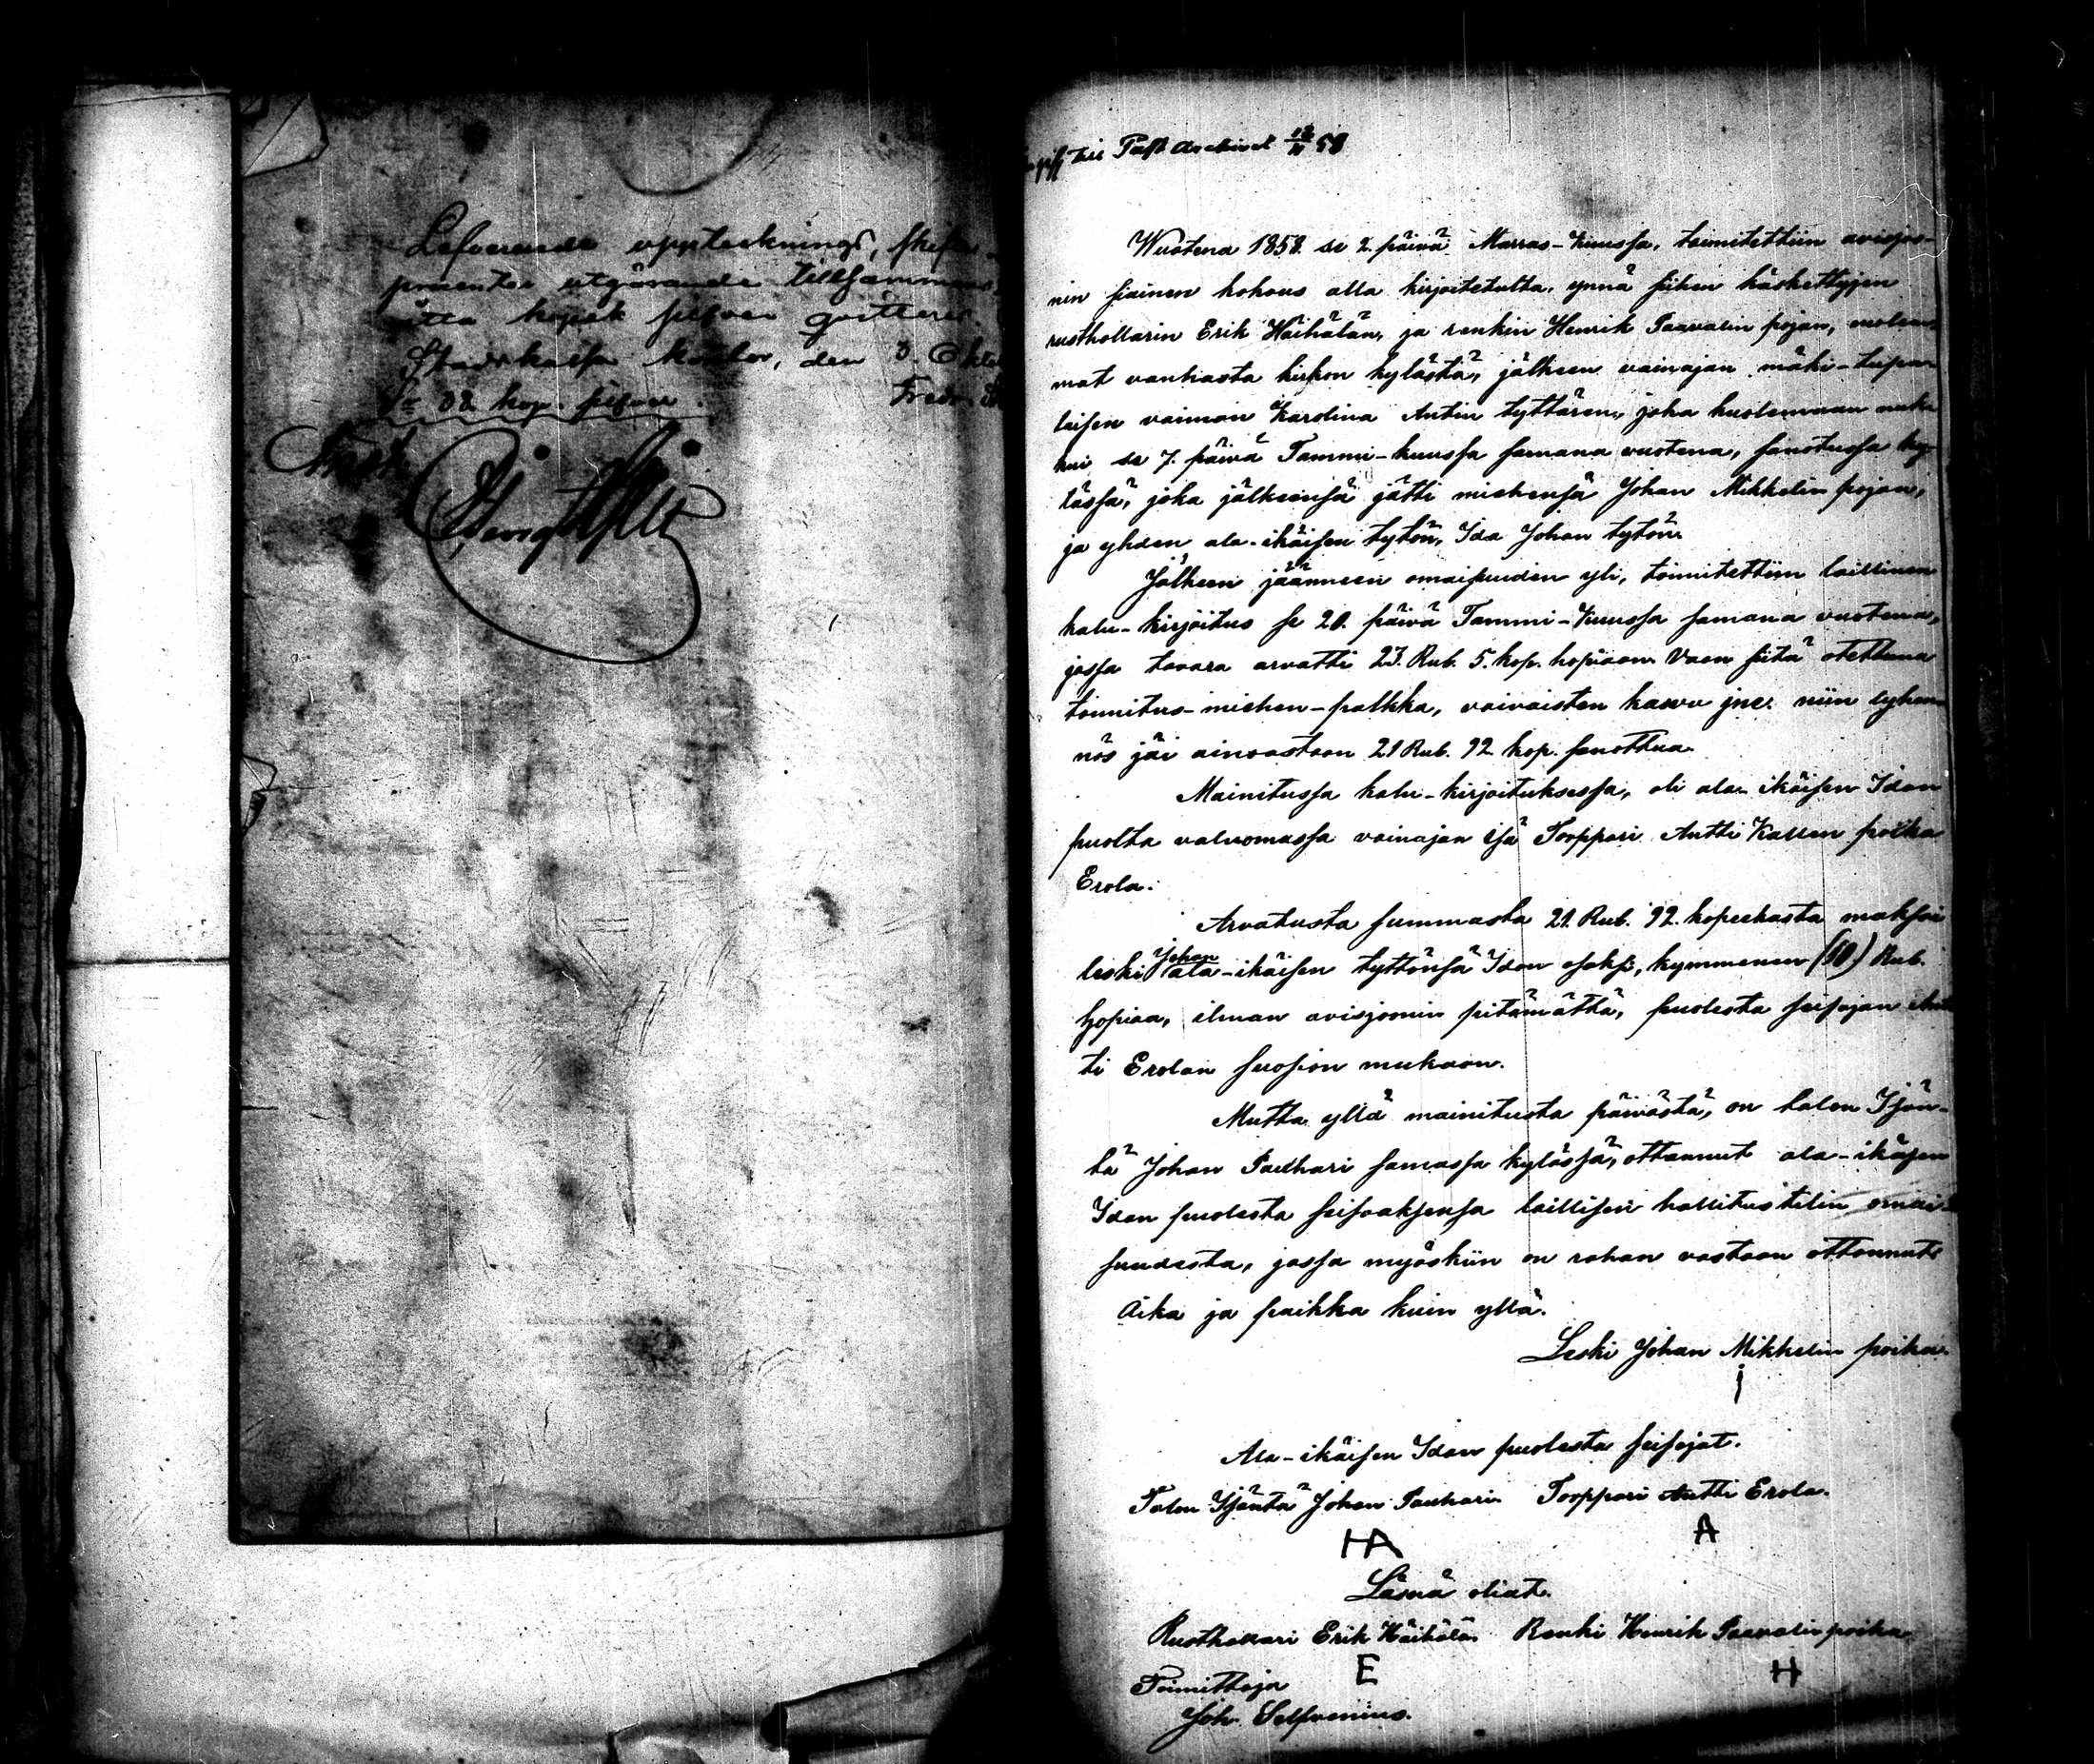 Lefvererade upptecknings, skiftes
procenter utgörande tillsammans
åtta kopek silfver qvitteras.
Stadskassa kontor, den 3. Okto
S:a 08. kop. silfver.
Fredr.
till Past Archivet 12/11 58
Wuotena 1858. se 2. päivä Marras-kuussa, toimitettiin avisjoo-
nin siainen kokous alla kirjoitetulta, ynnä siihen käskettyjen
rusthollarin Erik Häihälän, ja renkin Henrik Paavalin pojan, molem-
mat vanhasta kirkon kylästä, jälkeen vainajan mäki-tupa-
laisen vaimon Karolina Antin tyttären, joka kuolemaan nuk-
kui se 7. päivä Tammi-kuussa samana vuotena, sanotussa ky-
lässä, joka jälkeensä jätti miehensä Johan Mikkelin pojan,
ja yhden ala-ikäisen tytön, Ida Johan tytön.
Jälkeen jäänneen omaisuuden yli, toimitettiin laillinen
kalu-kirjoitus se 20. päivä Tammi-Kuussa samana vuotena,
jossa tavara arvatti 23. Rub. 5. kop. hopiaan. Vaan siitä otettuna
toimitus-miehen-palkka, vaivaisten kassa jne. niin lyhen-
nös jäi ainoastaan 21 Rub. 92 kop. sanottua.
Mainitussa kalu-kirjoituksessa, oli ala-ikäisen Idan
puolta valvomassa vainajan isä Torppari Antti Kallen poika
Erola.
Arvatusta summasta 21. Rub. 92. kopeekasta maksoi
leski Johan ala-ikäisen tyttönsä Idan osaksi, kymmenen (10) Rub.
hopiaa, ilman avisjoonin pitämättä, puolesta seisojan An
ti Erolan suosion mukaan.
Mutta yllä mainitusta päivästä, on talon Isän-
tä Johan Pauhari samassa kylässä, ottaanut ala-ikäsen
Idan puolesta seisoaksensa laillisen hallitus tilin omai-
suudesta, jossa myöskin on rahan vastaan ottannut.
Aika ja paikka kuin yllä.
Leski Johan Mikkelin poika.
Ala-ikäisen Idan puolesta seisojat.
Talon Isäntä Johan Pauhari. Torppari Antti Erola.
HA A
Läsnä oliat.
Rusthollari Erik Häihälä. Renki Henrik Paavalin poika.
E H
Toimittaja
Joh. Selfvenius.